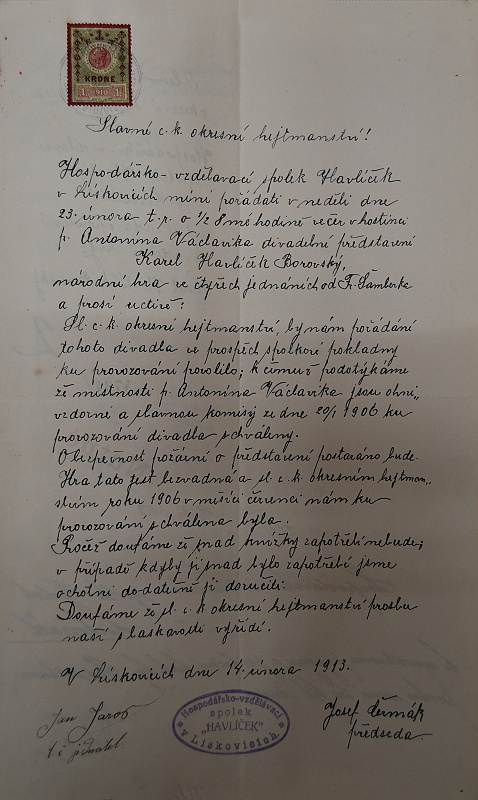 1
KRONE
1 1910 1
Slavné c. k. okresní hejtmanství!
Hospodářsko-vzdělavací spolek Havlíček
v Lískovicích míní pořádati v neděli dne
23. února t. r. o 1/2 8mé hodině večer v hostinci
p. Antonína Václavíka divadelní představení
Karel Havlíček Borovský,
národní hra ve čtyřech jednáních od F. Šamberka
a prosí uctivě:
Sl. c. k. okresní hejtmanství, by nám pořádání
tohoto divadla ve prospěch spolkové pokladny
ku provozování povolilo; k čemuž podotýkáme
že místnosti p. Antonína Václavíka jsou ohni„
vzdorné a slavnou komisí ze dne 20/1 1906 ku
provozování divadla schváleny.
O bezpečnost požární o představení postaráno bude.
Hra tato jest bezvadná a sl. c. k. okresním hejtman„
stvím roku 1906 v měsíci červenci nám ku
provozování schválena byla.
Pročež doufáme že snad knížky zapotřeli nebude;
v případě kdyby jí snad bylo zapotřebí jsme
ochotni dodatečně ji doručiti.
Doufáme že sl. c. k. okresní hejtmanství prosbu
naší s laskavostí vyřídí.
V Lískovicích dne 14. února 1913.
Jan Jaroš
t. č. jednatel.
Hospodářsko-vzdělávací
spolek
"HAVLÍČEK"
v Liskovicích.
Josef Čermák
předseda.